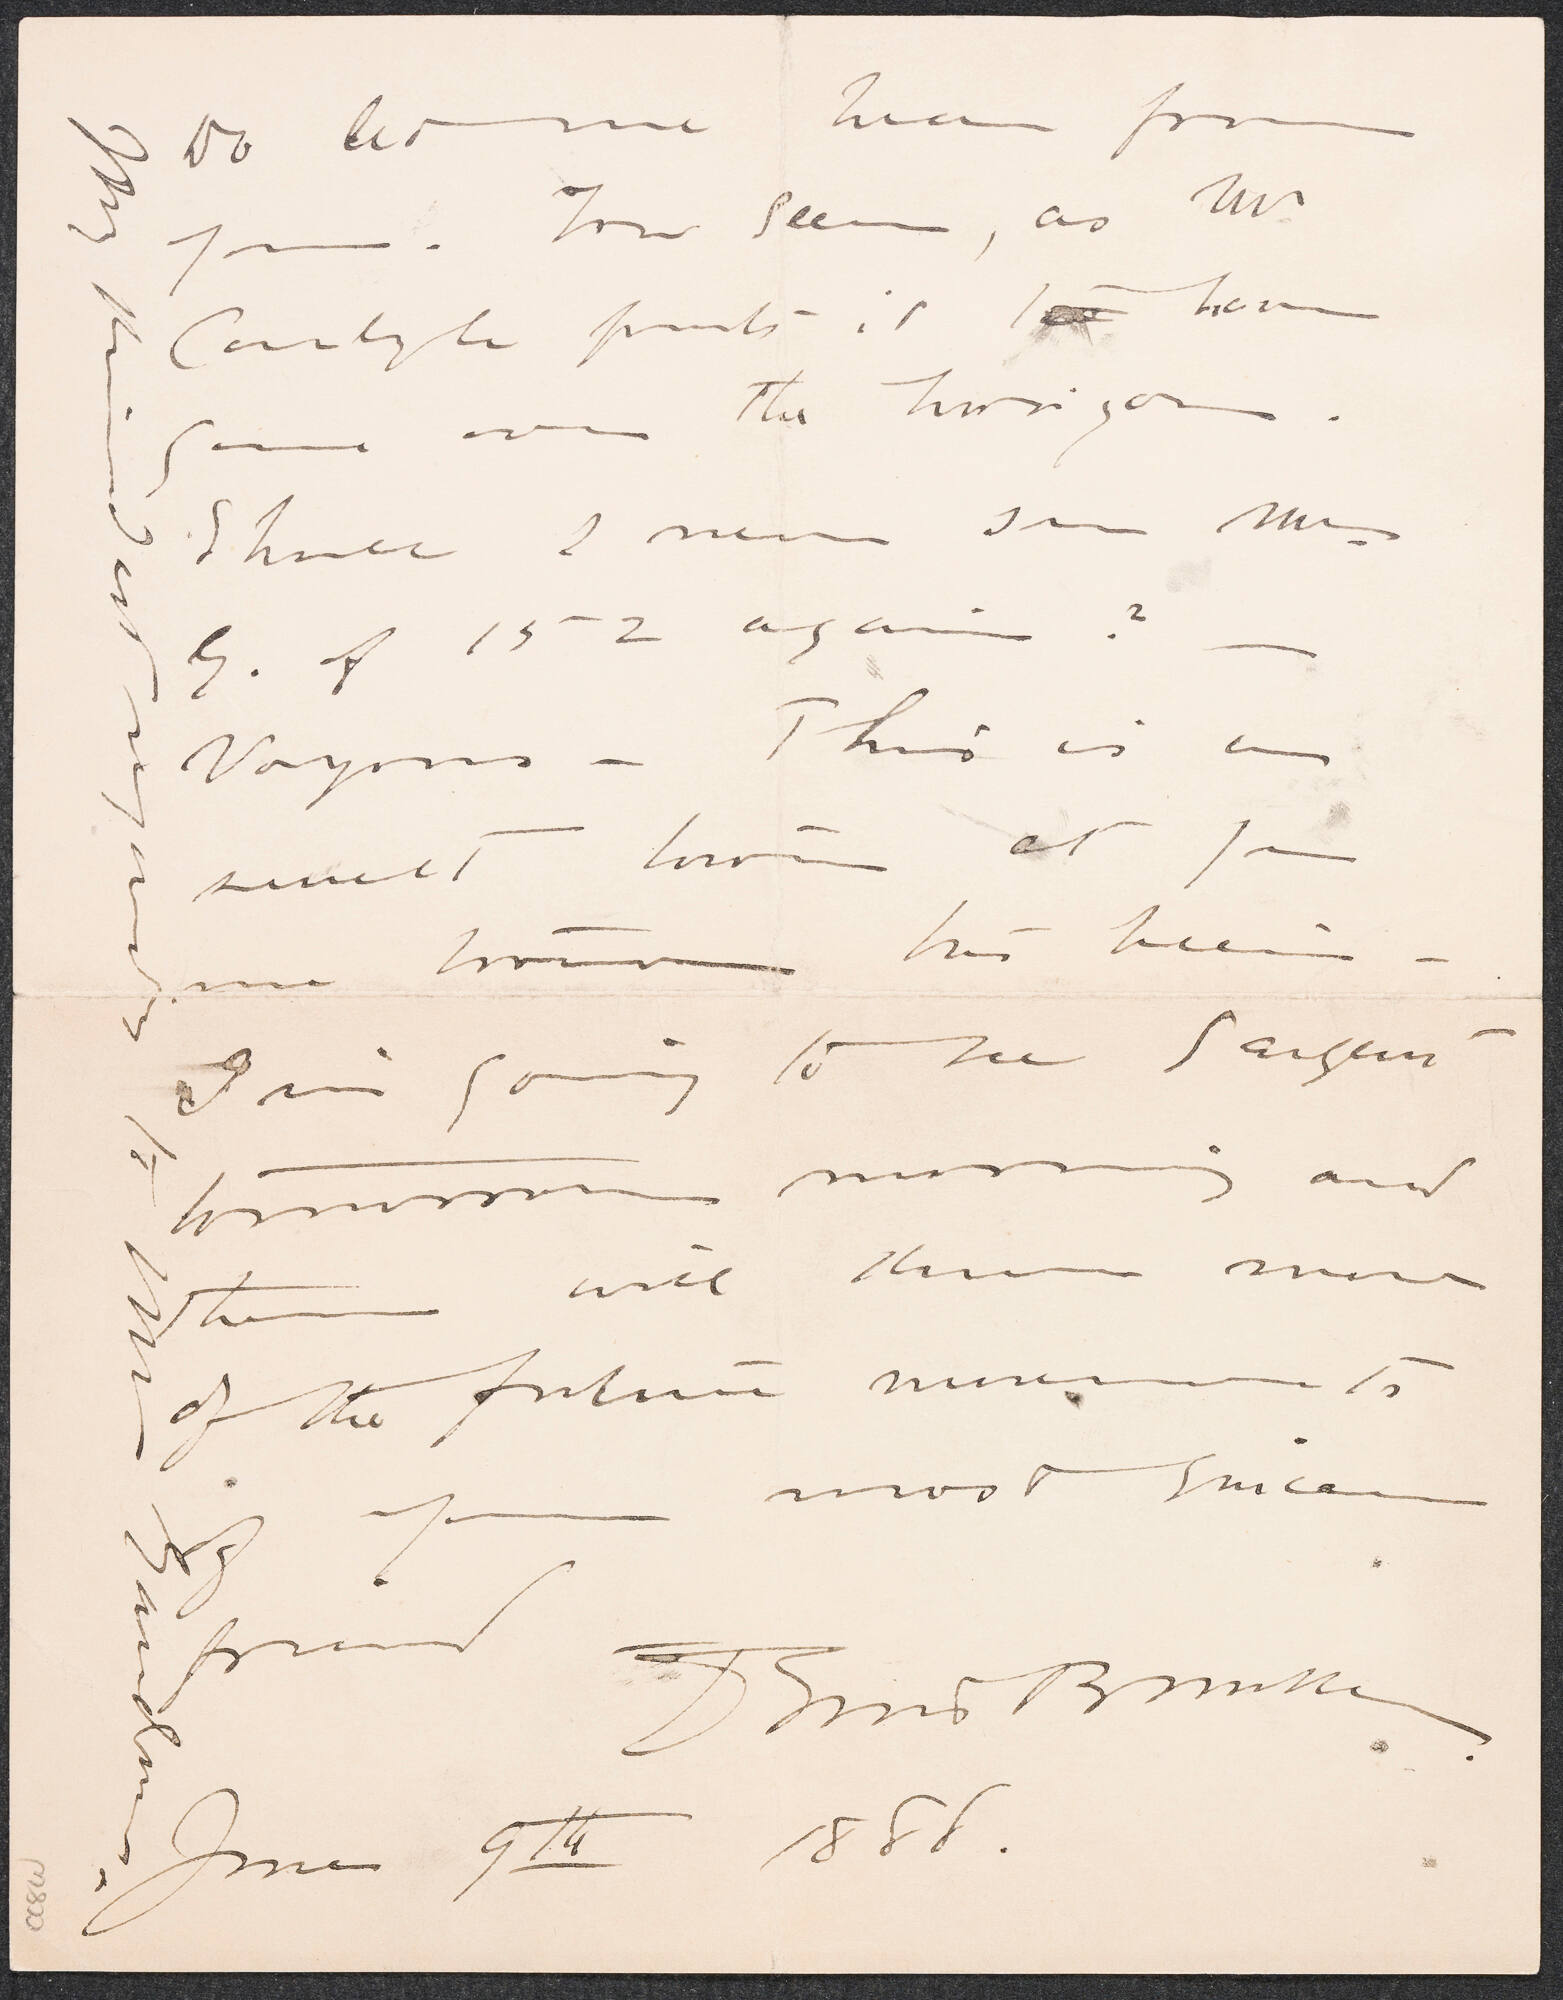 Do let me hear from
you. You seem, as Mr
Carlyle puts it to have
gone over the horizon.
Shall I never see Mrs.
G. of 152 again? —
Voyons – This is a
small town at you
me but been –
I'm going to see Sargent
tomorrow morning and
then will know more
of the future movements
of your most sincere
friend
1886.
June 9th
My kindest regards to Mr Gardner.